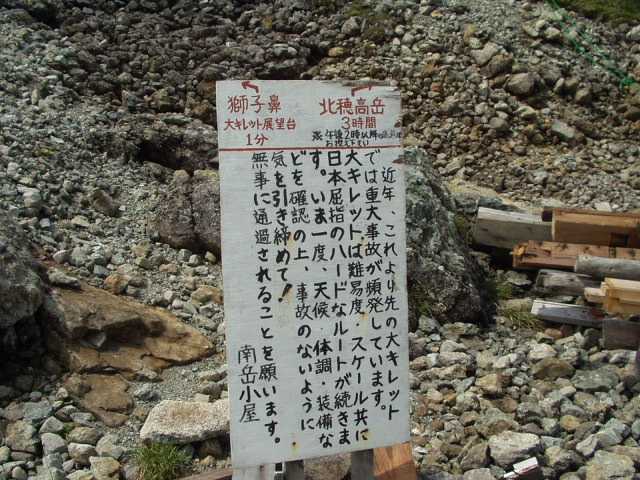 獅子鼻
大キレット展望台
1分
北穂高岳
3時間
午後2時以降の
お控え下さい
近年、これより先の大キレット
では重大事故が頻発しています。
大キレットは難易度・スケール共に
日本屈指のハードなルートが続きま
す。いま一度、天候・体調・装備な
どを確認の上、事故のないように
気を引き締めて!
無事に通過されることを願います。
南岳小屋